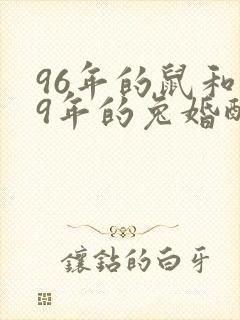 96年的鼠和
9年的兔婚配
镶钻的白牙